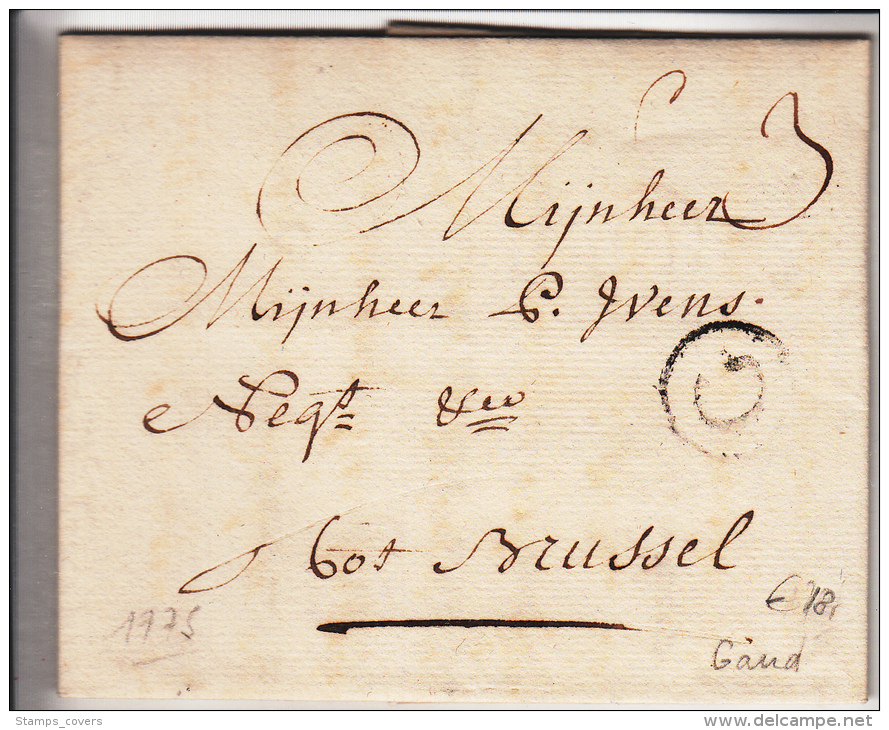 3
Mijnheer
Mijnheer P. Jvens.
Negt &ca
G
tot Brussel
1775
€ 18,
Gand
Stamps_covers
www.delcampe.net